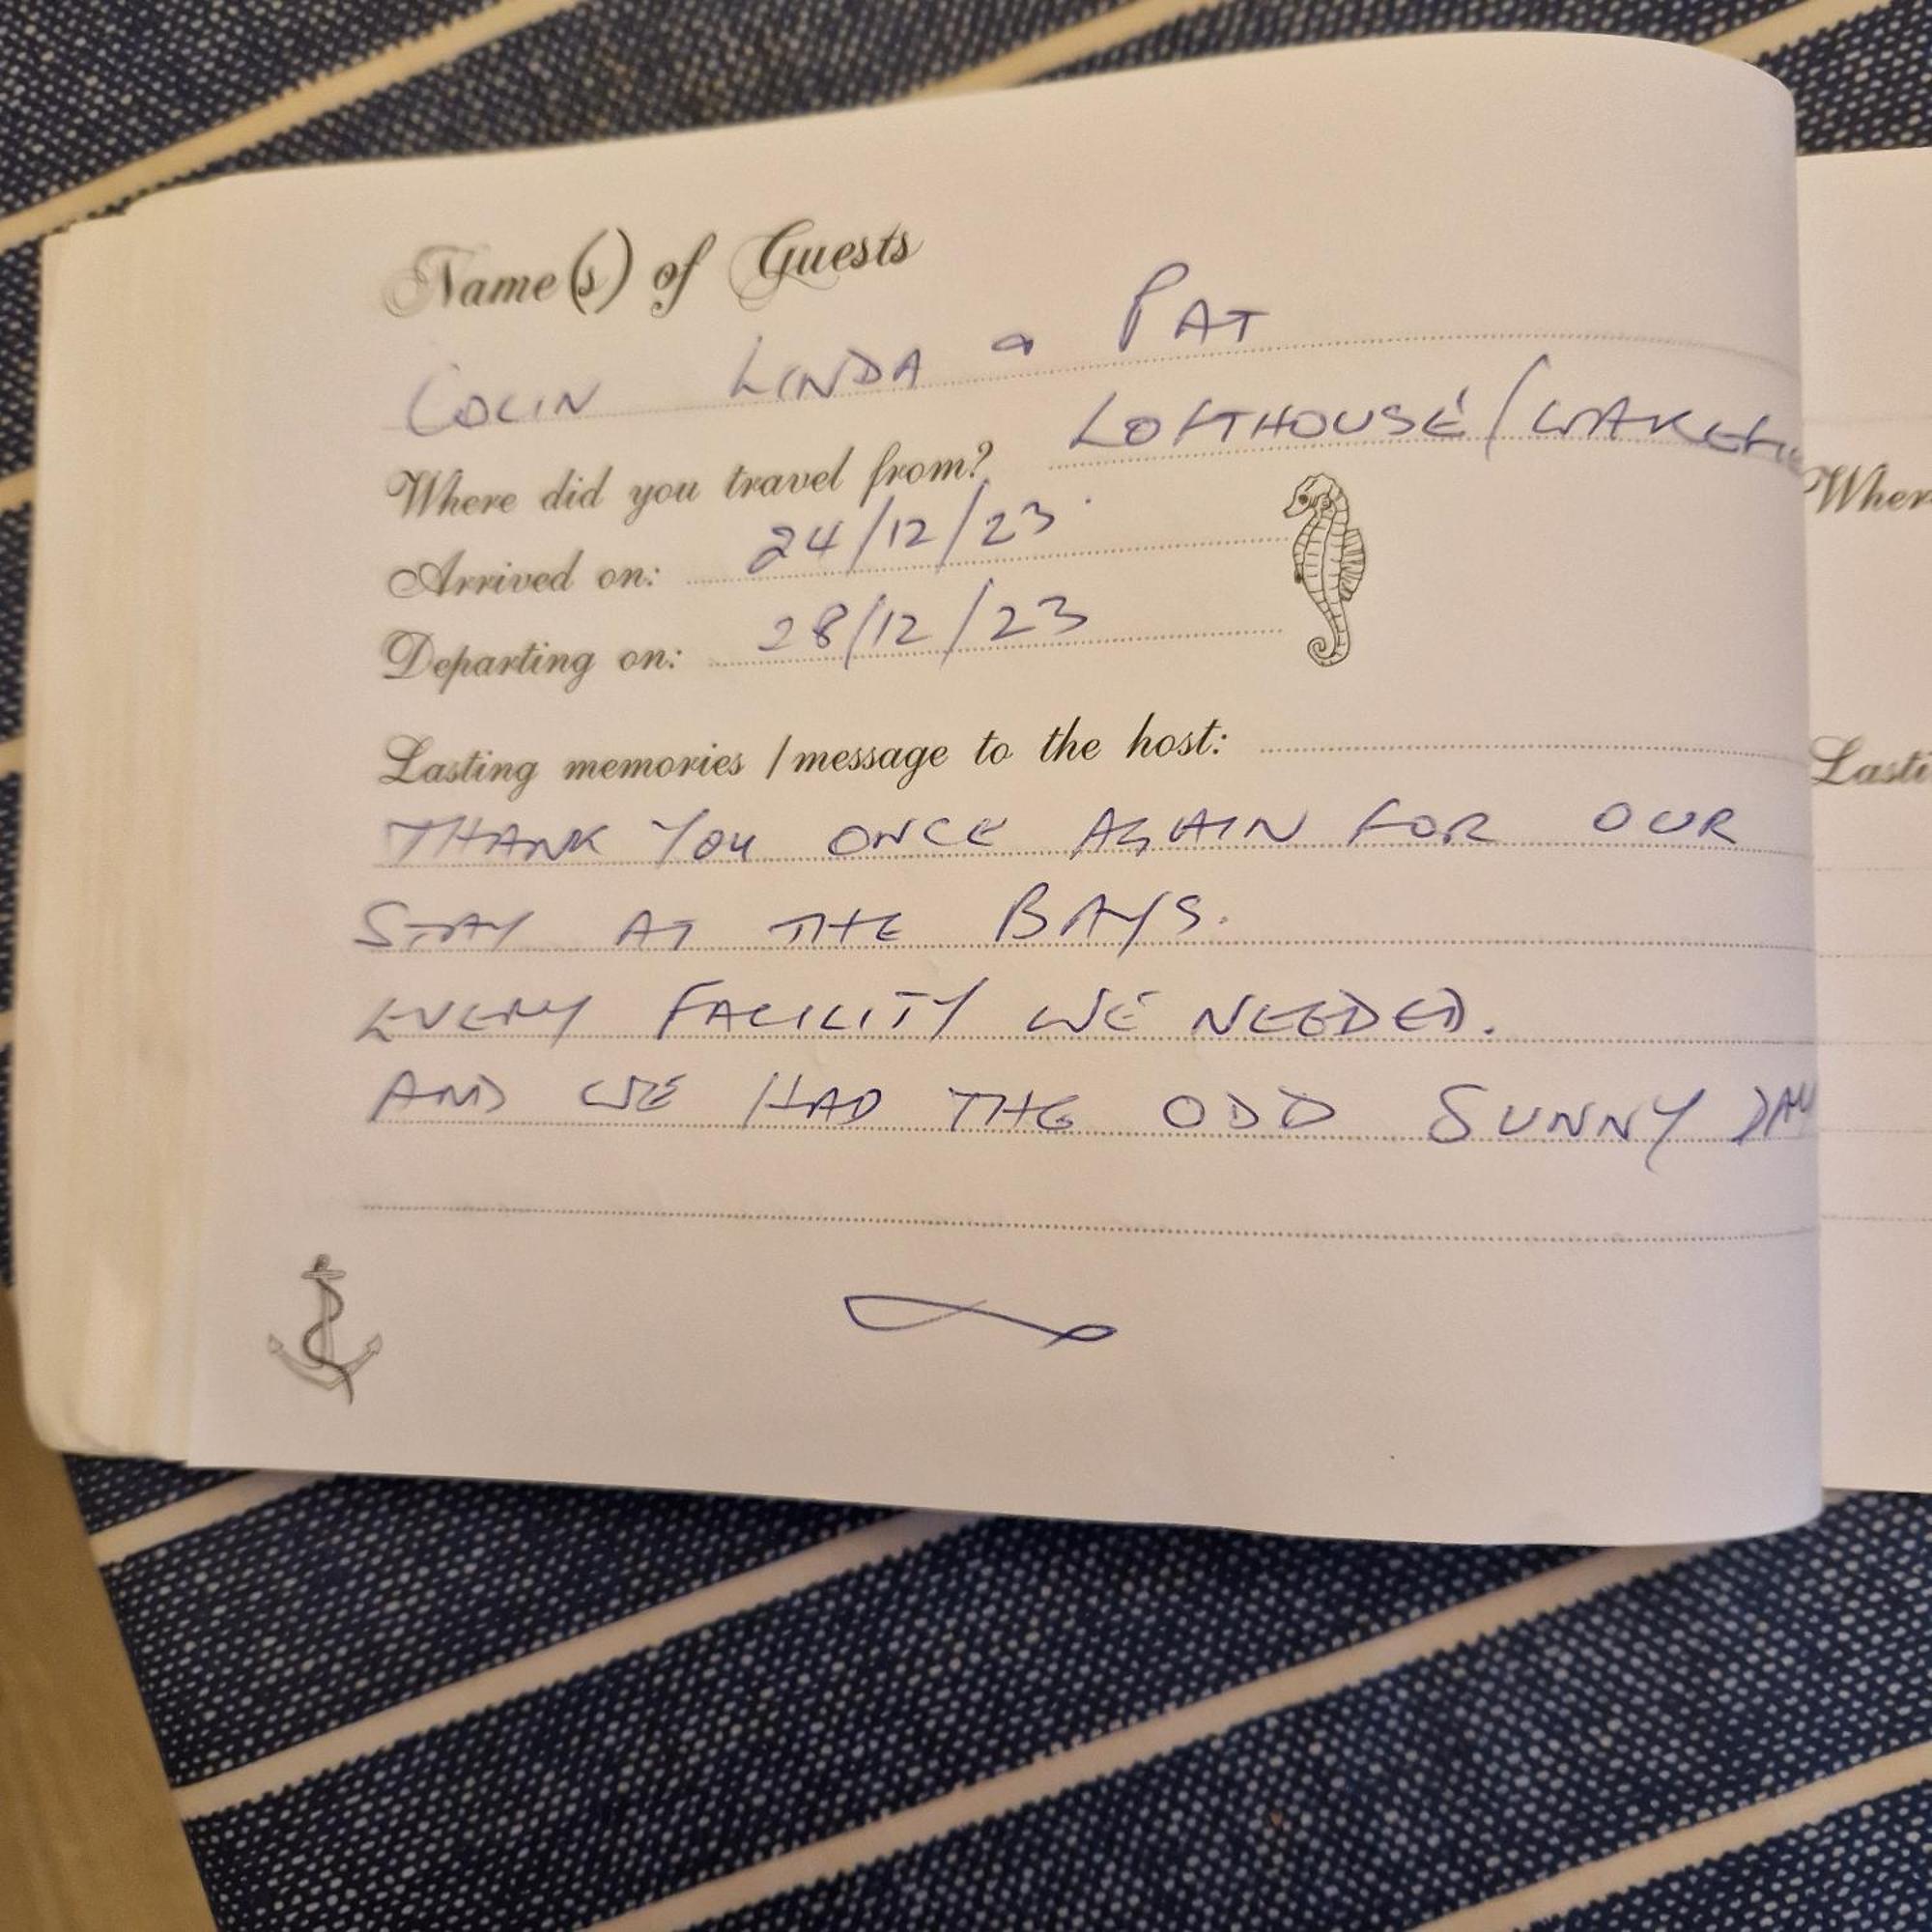 Name(s) of Guests
COLIN LINDA & PAT
Where did you travel from? LOFTHOUSE/WAKEFIE
Arrived on: 24/12/23
Departing on: 28/12/23
Lasting memories / message to the host:
THANK YOU ONCE AGAIN FOR OUR
STAY AT THE BAYS.
EVERY FACILITY WE NEEDED.
AND WE HAD THE ODD SUNNY DAY
Wher
Lasti